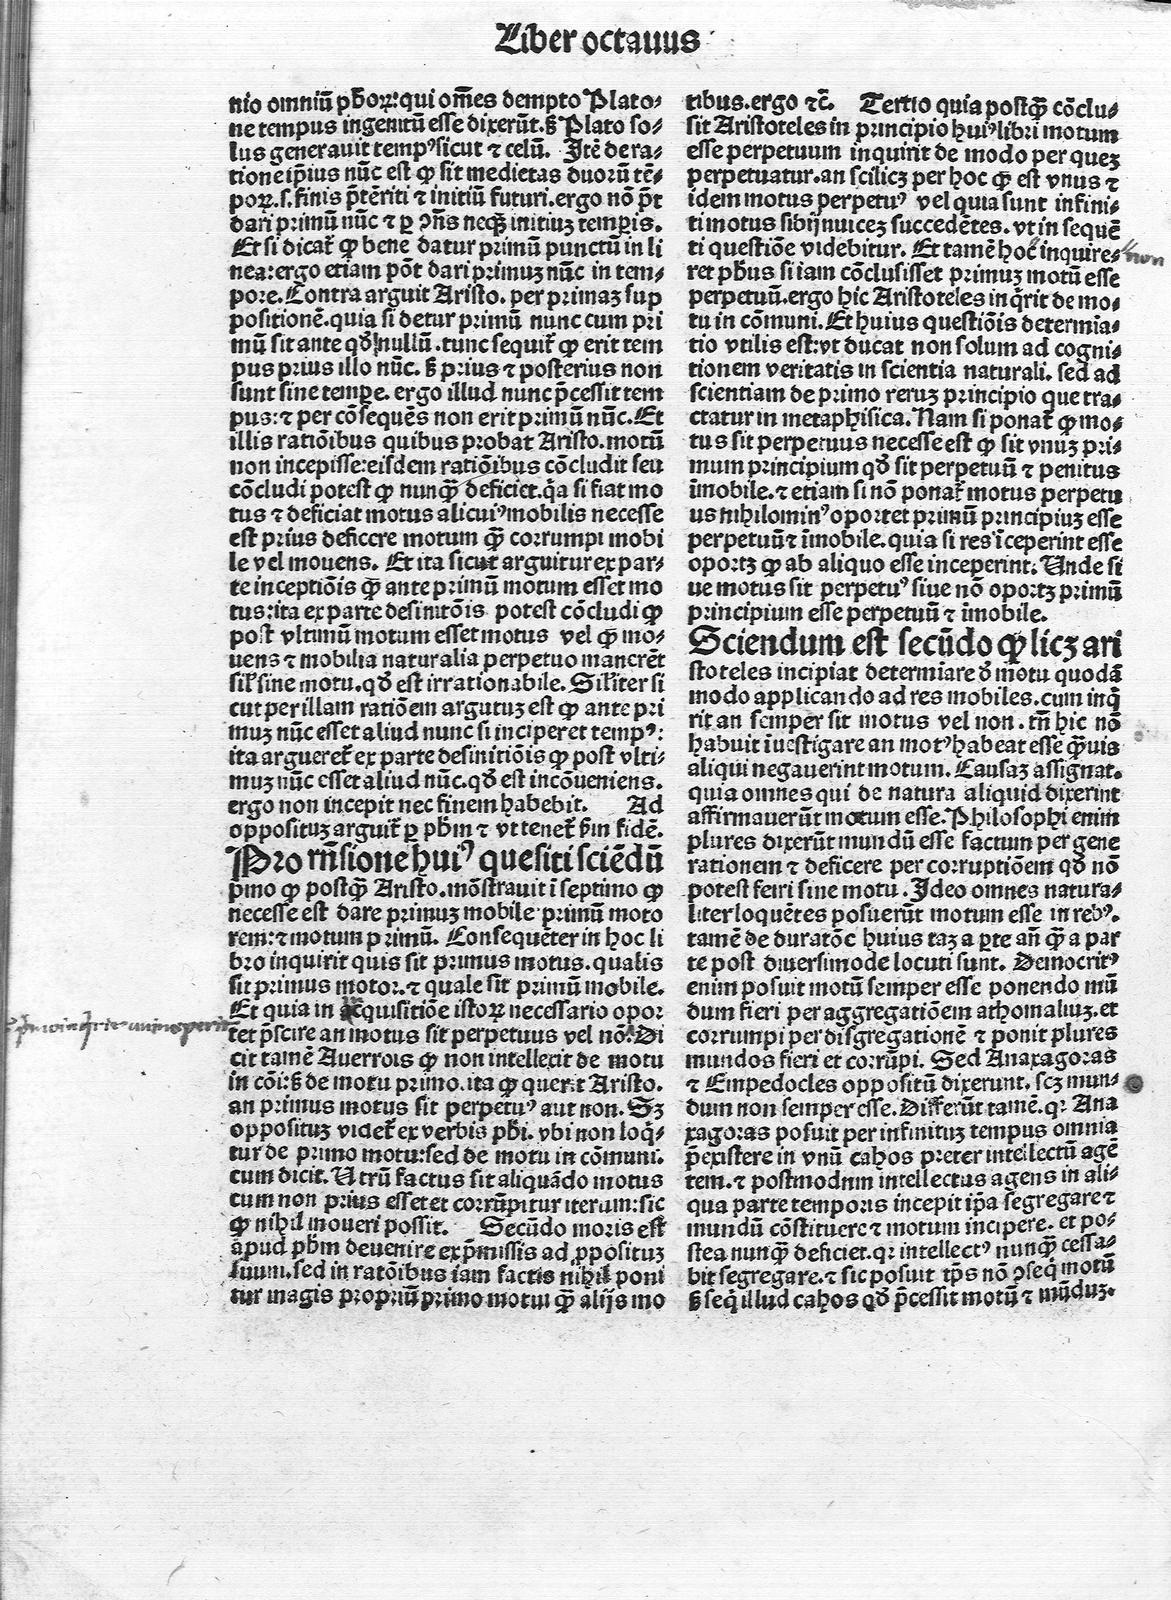 Liber octauus
nio omniū pħoꝝ: qui om̄es dempto Plato⸗
ne tempus ingenitū esse dixerūt. ß Plato so⸗
lus generauit tempꝰ sicut ⁊ celū. Itē de ra⸗
tione ip̄ius nūc est ꝙ sit medietas duorū tē⸗
poꝝ. s. finis p̄teriti ⁊ initiū futuri. ergo nō p̄t
dari primū nūc ⁊ ꝑ ꝯn̄s neqꝫ initiuꝫ tempis.
Et si dicat̄ ꝙ bene datur primū punctū in li
nea: ergo etiam pōt dari primuꝫ nūc in tem⸗
pore. Contra arguit Aristo. per primaꝫ sup
positionē. quia si detur primū nunc cum pri
mū sit ante qđ nullū. tunc sequit̄ ꝙ erit tem
pus prius illo nūc. ß prius ⁊ posterius non
sunt sine tempe. ergo illud nunc p̄cessit tem
pus: ⁊ per cōsequēs non erit primū nūc. Et
illis ratiōibus quibus probat Aristo. motū
non incepisse: eisdem ratiōibus cōcludit seu
cōcludi potest ꝙ nunqꝫ̄ deficiet. q̄a si fiat mo
tus ⁊ deficiat motus alicuiꝰ mobilis necesse
est prius deficere motum qꝫ̄ corrumpi mobi
le vel mouens. Et ita sicut arguitur ex par⸗
te inceptiōis qꝫ̄ ante primū motum esset mo
tus: ita ex parte desinitōis potest cōcludi ꝙ
post vltimū motum esset motus vel qꝫ̄ mo⸗
uens ⁊ mobilia naturalia perpetuo manerēt
sil̄ sine motu. qđ est irrationabile. Sil̄iter si
cut per illam ratiōem argutuꝫ est ꝙ ante pri
muꝫ nūc esset aliud nunc si inciperet tempꝰ:
ita argueret̄ ex parte desinitiōis ꝙ post vlti⸗
muꝫ nūc esset aliud nūc. qđ est incōueniens.
ergo non incepit nec finem habebit. Ad
opposituꝫ arguit̄ ꝑ pħm ⁊ vt tenet̄ ẜm fidē.
Pro rn̄sione huiꝰ quesiti sciēdū
p̄mo ꝙ postqꝫ̄ Aristo. mōstrauit ī septimo ꝙ
necesse est dare primuꝫ mobile primū moto
rem: ⁊ motum primū. Consequēter in hoc li
bro inquirit quis sit primus motus. qualis
sit primus motor. ⁊ quale sit primū mobile.
Et quia in acquisitiōe istoꝝ necessario opor
tet p̄scire an motus sit perpetuus vel nō. Di
cit tamē Auerrois ꝙ non intellexit de motu
in cōi: ß de motu primo. ita ꝙ querit Aristo.
an primus motus sit perpetuꝰ aut non. Sꝫ
oppositum videt̄ ex verbis pħi. vbi non loq̄⸗
tur de primo motu: sed de motu in cōmuni.
cum dicit. Utrū factus sit aliquādo motus
cum non prius esset et corrūpitur iterum: sic
ꝙ nihil moueri possit. Secūdo moris est
apud pħm deuenire ex p̄missis ad ꝓpositum
suum. sed in ratōibus iam factis nihil poni
tur magis propriū primo motui qꝫ̄ alijs mo
tibus. ergo ⁊c̄. Tertio quia postqꝫ̄ cōclu⸗
sit Aristoteles in principio huiꝰ libri motum
esse perpetuum inquirit de modo per quez
perpetuatur. an scilicꝫ per hoc ꝙ est vnus ⁊
idem motus perpetuꝰ vel quia sunt infini⸗
ti motus sibijnuicez succedētes. vt in sequē
ti questiōe videbitur. Et tamē hoc inquire⸗
non
ret pħus si iam cōclusisset primuꝫ motū esse
perpetuū. ergo hic Aristoteles inq̄rit de mo⸗
tu in cōmuni. Et huius questiōis determia⸗
tio vtilis est: vt ducat non solum ad cogni⸗
tionem veritatis in scientia naturali. sed ad
scientiam de primo reruꝫ principio que tra⸗
ctatur in metaphisica. Nam si ponat̄ ꝙ mo⸗
tus sit perpetuus necesse est ꝙ sit vnuꝫ pri⸗
mum principium qđ sit perpetuū ⁊ penitus
īmobile. ⁊ etiam si nō ponat̄ motus perpetu
us nihilominꝰ oportet primū principiuꝫ esse
perpetuū ⁊ īmobile. quia si res īceperint esse
oportꝫ ꝙ ab aliquo esse inceperint. Unde si
ue motus sit perpetuꝰ siue nō oportꝫ primū
principium esse perpetuū ⁊ īmobile.
Sciendum est secūdo ꝙ licꝫ ari
stoteles incipiat determiare đ motu quodā
modo applicando ad res mobiles. cum inq̄
rit an semper sit motus vel non. tn̄ hic nō
habuit īuestigare an motꝰ habeat esse qꝫ̄uis
aliqui negauerint motum. Causaꝫ assignat.
quia omnes qui de natura aliquid dixerint
affirmauerūt motum esse. Philosophi enim
plures dixerūt mundū esse factum per gene
rationem ⁊ deficere per corruptiōem qđ nō
potest feiri sine motu. Ideo omnes natura⸗
liter loquētes posuerūt motum esse in rebꝰ.
tamē de duratōe huius taꝫ a ꝑte an̄ qꝫ̄ a par
te post diuersimode locuti sunt. Democritꝰ
enim posuit motū semper esse ponendo mū
dum fieri per aggregatiōem athomaliuꝫ. et
corrumpi per disgregationē ⁊ ponit plures
mundos fieri et corrūpi. Sed Anaxagoras
⁊ Empedocles oppositū dixerunt. scꝫ mun⸗
dum non semper esse. Differūt tamē. qꝛ Ana
xagoras posuit per infinituꝫ tempus omnia
p̄existere in vnū cahos preter intellectū agē
tem. ⁊ postmodum intellectus agens in ali⸗
qua parte temporis incepit ip̄a segregare ⁊
mundū cōstituere ⁊ motum incipere. et po⸗
stea nunqꝫ̄ deficiet. qꝛ intellectꝰ nunqꝫ̄ cessa⸗
bit segregare. ⁊ sic posuit tp̄s nō ꝯseq̄ motū
ß seq̄ illud cahos qđ p̄cessit motū ⁊ mūduꝫ.